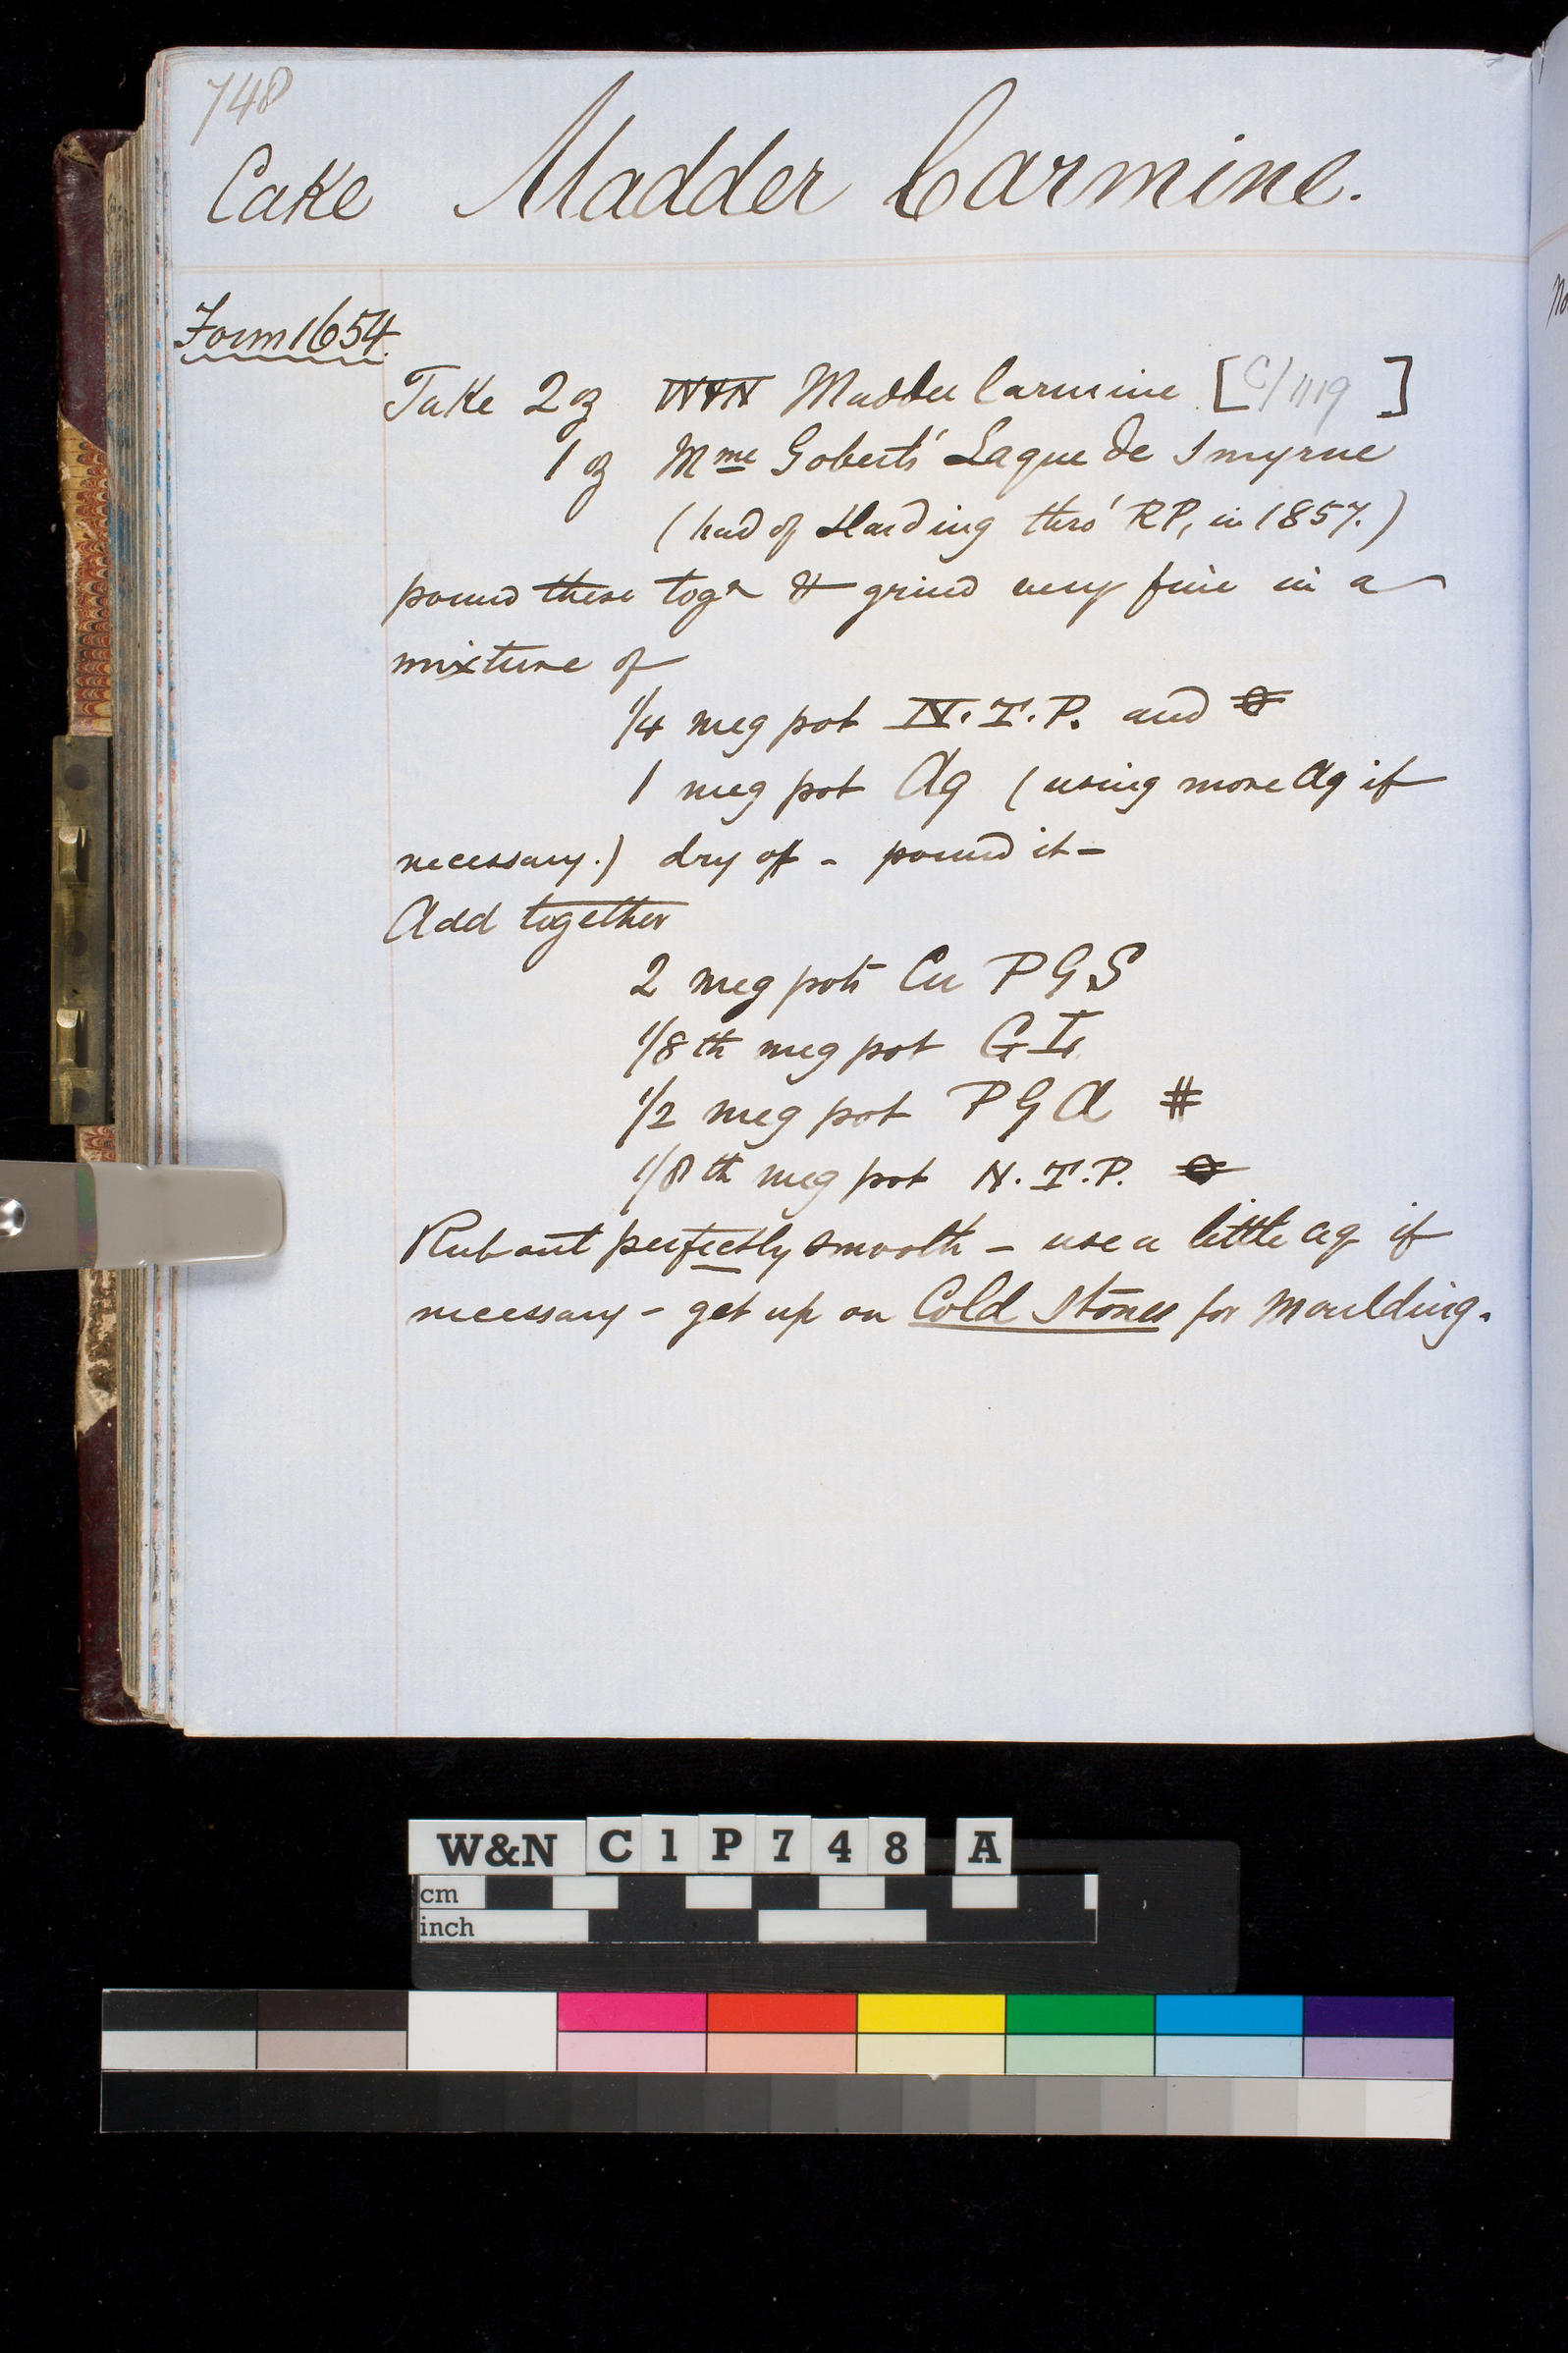 748
Cake Madder Carmine.
Form 1654.
Take 2 oz W&N Madder Carmine [C/1119]
1 oz Mme Goberts' Laque de Smyrne
(had of Harding thro' RP, in 1857.)
pound these togr & grind very fine in a
mixture of
1/4 meg pot N.T.P. and
1 meg pot Aq (using more Aq if
necessary.) dry off - pound it -
Add together
2 meg pots Cu PGS
1/8th meg pot G
1/2 meg pot PGA #
1/8th meg pot N.T.P.
Rub out perfectly smooth - use a little aq if
necessary - get up on Cold Stones for Moulding.
W&N C1P748 A
cm
inch